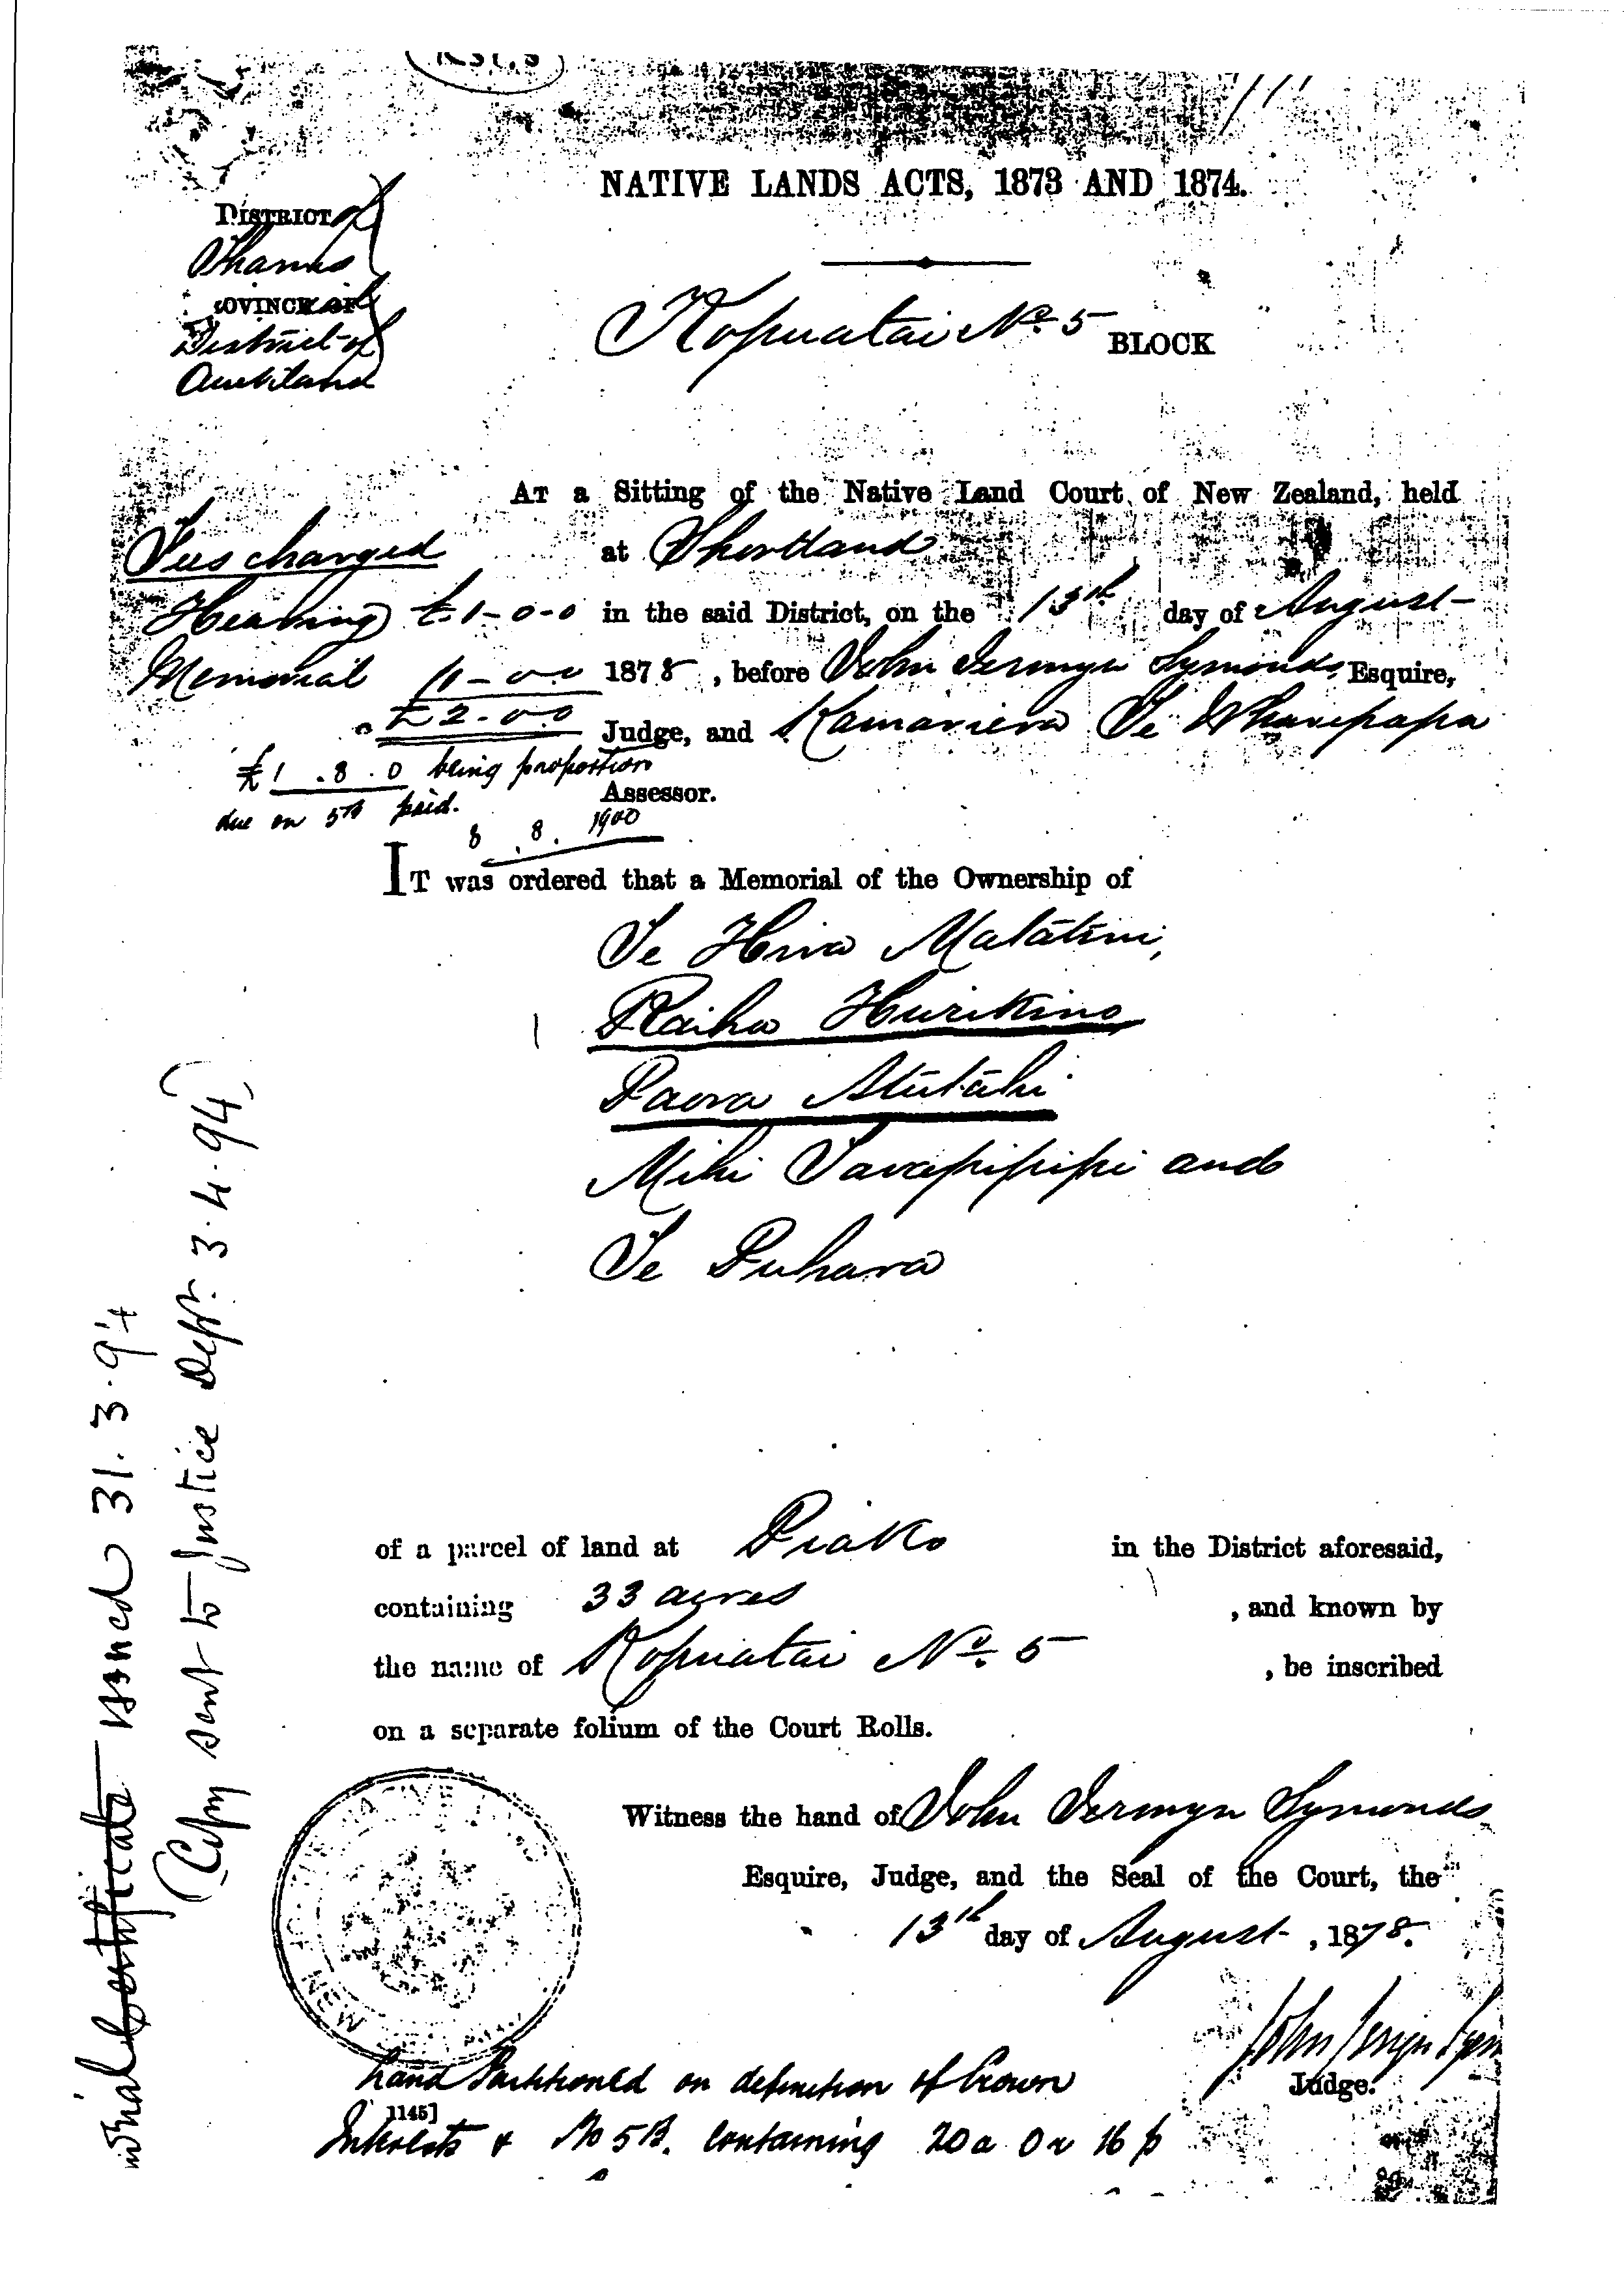 NATIVE LANDS ACTS, 1873 AND 1874.
DISTRICT of
Thames
OVINCE OF
District of
Auckland
Kopuatai No. 5 BLOCK
AT a Sitting of the Native Land Court of New Zealand, held
at Shortland
in the said District, on the 13th day of August
1878, before John Jermyn Symonds, Esquire,
Judge, and Kamariera Te Wharepapa
Assessor.
Fees charged
Hearing £1-0-0
Memorial 1-0-0
£2-0.0
£1.8.0 being proportion
due on 5B paid.
8.8.1900
IT was ordered that a Memorial of the Ownership of
Te Hira Matātini,
Raiha Hurikino
Paora Atūtāhi
Mihi Tarapipipi and
Te Puhara
of a parcel of land at Piako in the District aforesaid,
containing 33 acres, and known by
the name of Kopuatai No. 5, be inscribed
on a separate folium of the Court Rolls.
Witness the hand of John Jermyn Symonds
Esquire, Judge, and the Seal of the Court, the
13th day of August, 1878.
Judge.
Land Partitioned on definition of Crown
1145]
Interests & No 5B. containing 20a 0r 16p
certificate issued 31.3.94
(Copy sent to Justice Dept. 3.4.94)
NEW